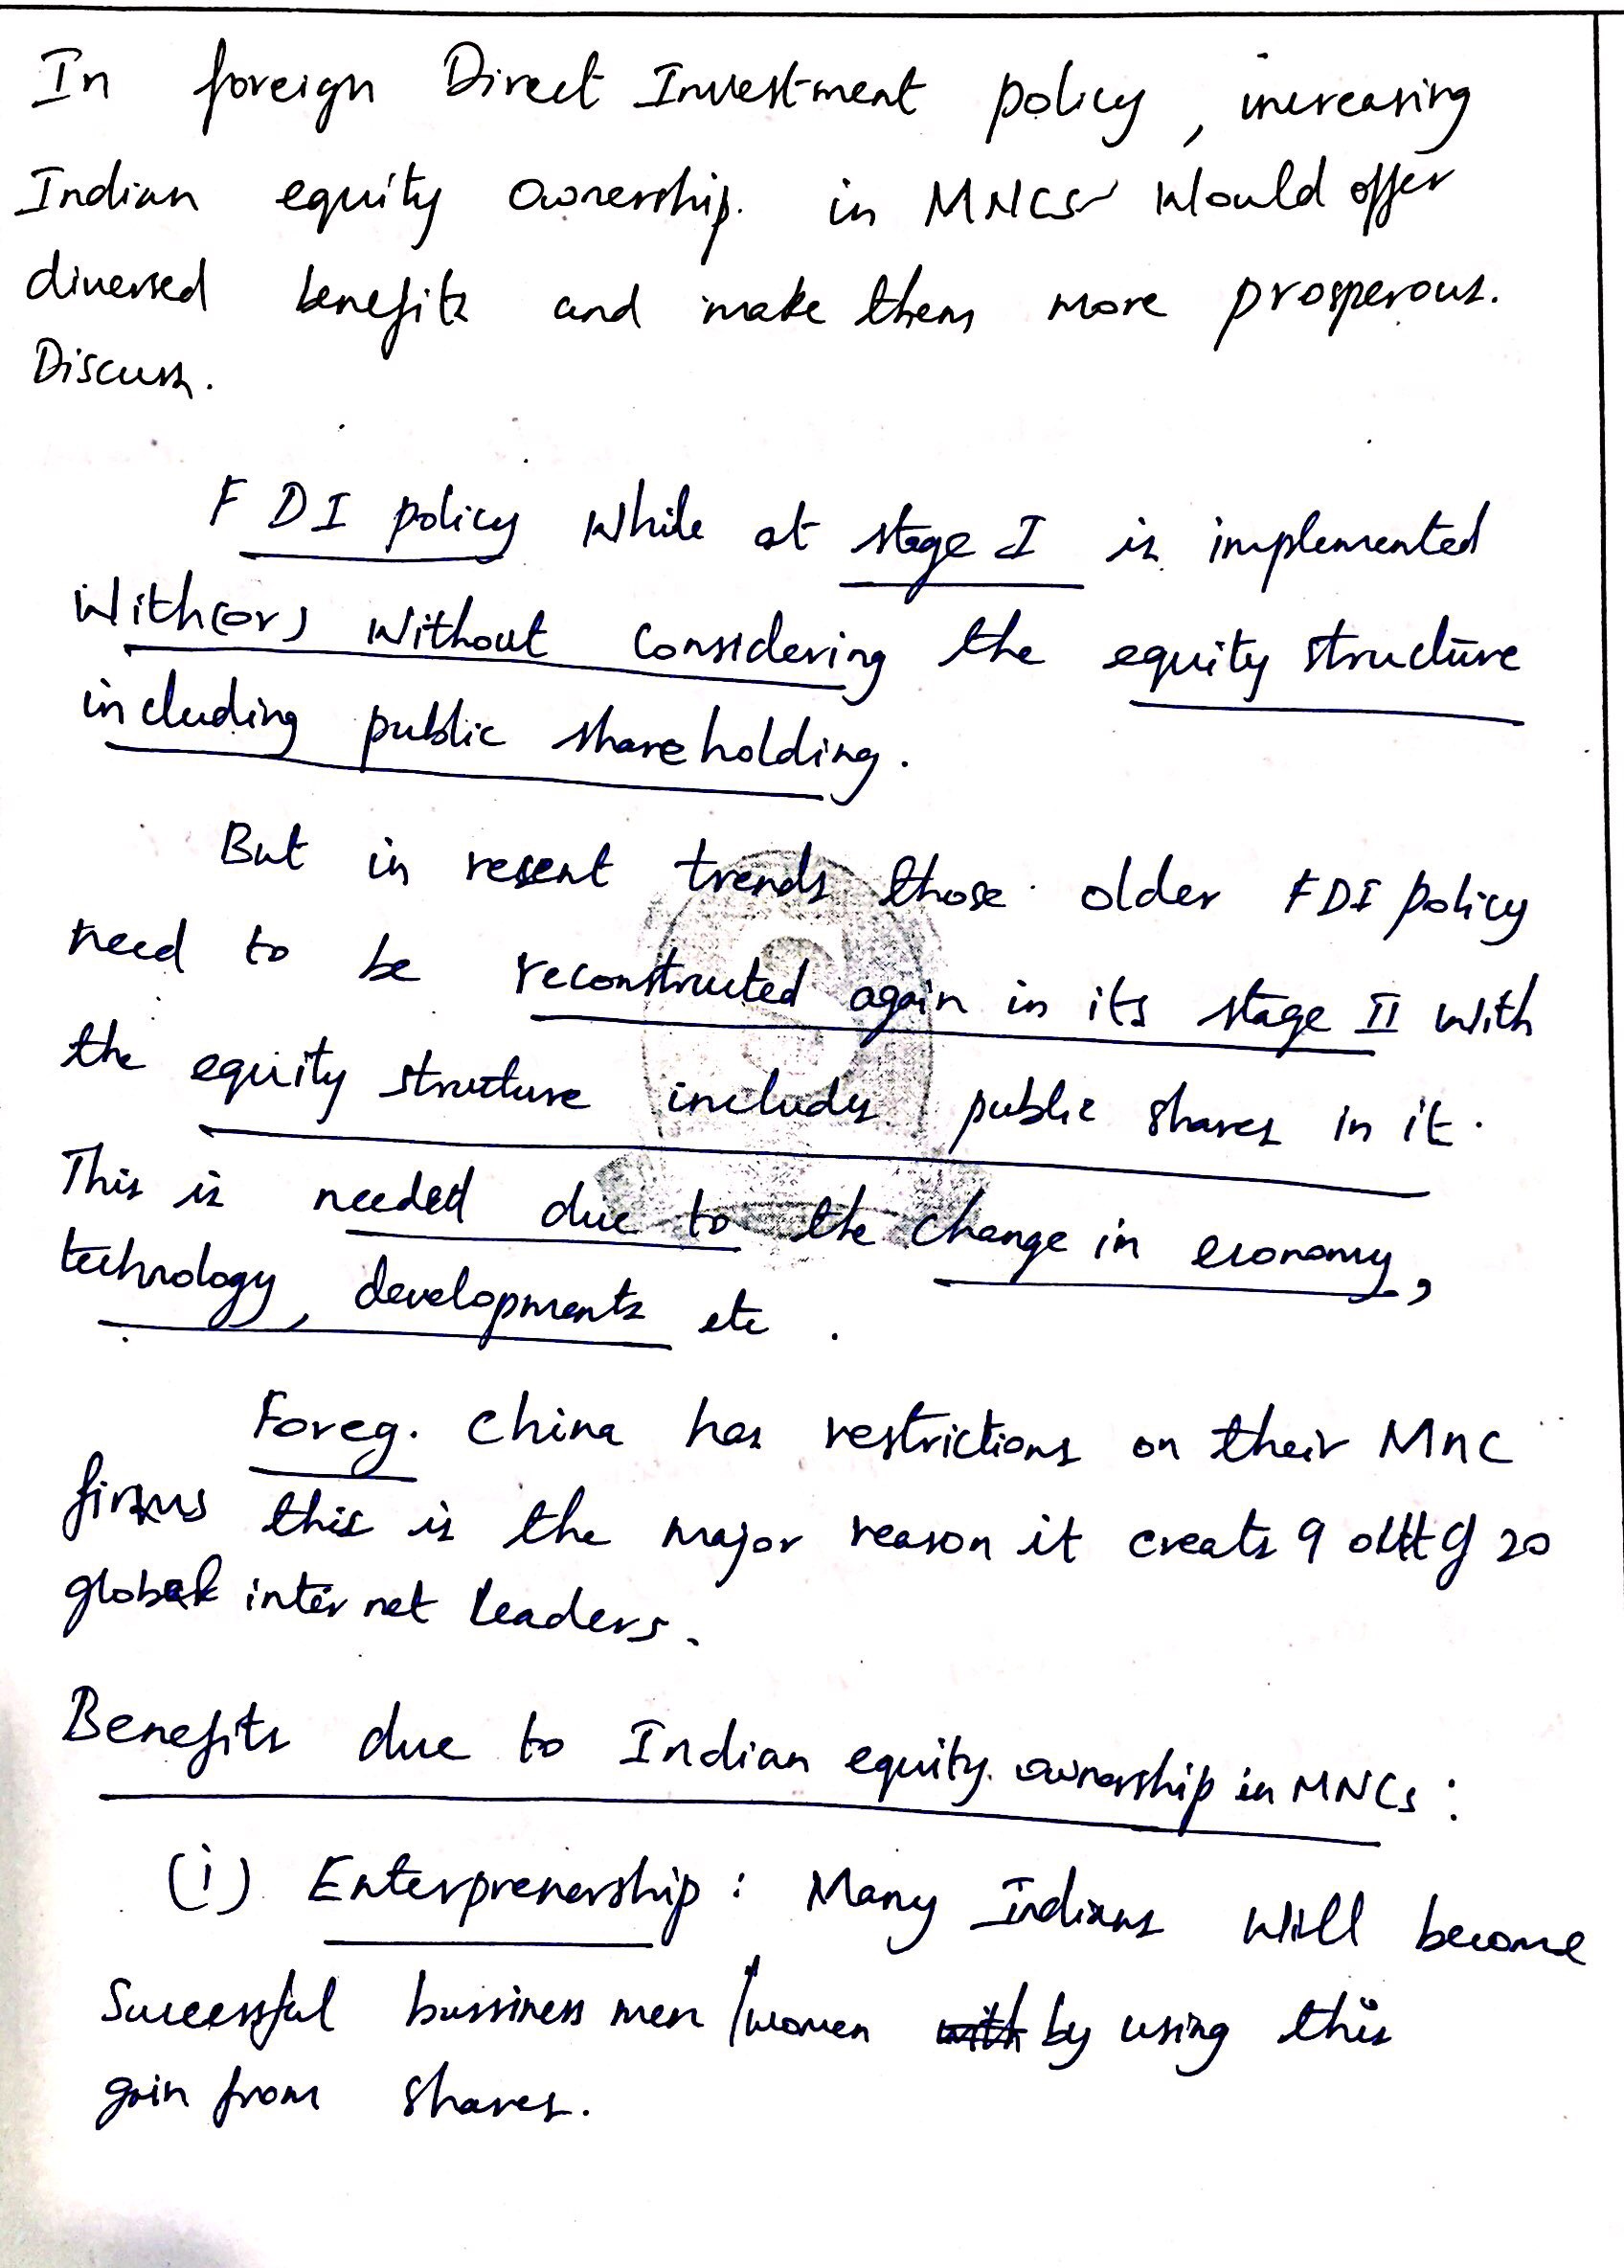 In foreign Direct Investment policy, increasing
Indian equity ownership. in MNCs would offer
diversed benefits and make them more prosperous.
Discuss.
FDI policy while at stage I is implemented
with(or) without considering the equity structure
including public shareholding.
But in resent trends those older FDI policy
need to be reconstructed again in its stage II with
the equity structure includes public shares in it.
This is needed due to the change in economy,
technology, developments etc.
Foreg. China has restrictions on their Mnc
firms this is the major reason it creats 9 out of 20
global internet leaders.
Benefits due to Indian equity ownership in MNCs:
(i) Enterprenership: Many Indians will become
Successful bussiness men/women with by using this
gain from shares.